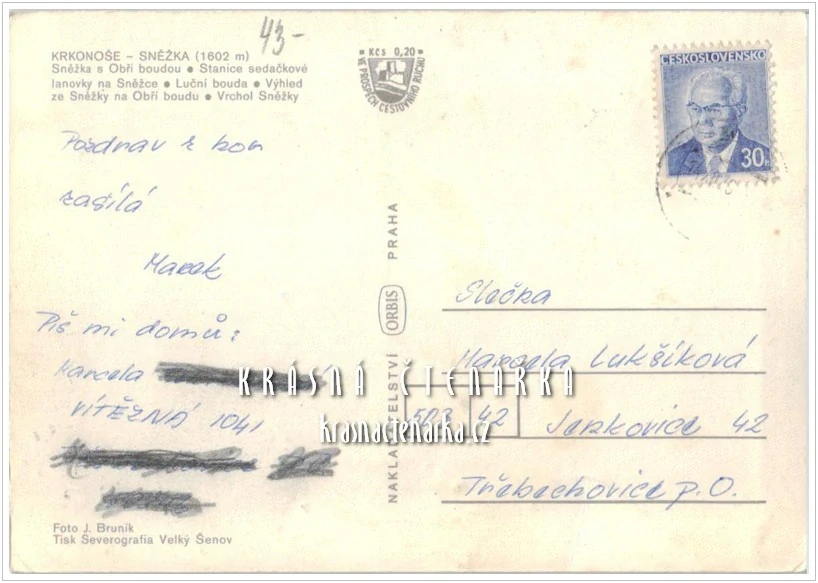 43-
KRKONOŠE – SNĚŽKA (1602 m)
Sněžka s Obří boudou • Stanice sedačkové
lanovky na Sněžce • Luční bouda • Výhled
ze Sněžky na Obří boudu • Vrchol Sněžky
Kčs 0,20
VE PROSPĚCH CESTOVNÍHO RUCHU
ČESKOSLOVENSKO
30
Pozdrav z hor
zasílá
Marek
Piš mi domů:
Marcela
VÍTĚZNÁ 1041
Foto J. Bruník
Tisk Severografia Velký Šenov
NAKLADATELSTVÍ ORBIS PRAHA
Slečka
Marcela Lukšíková
503 42 Jenkovice 42
Třebechovice p. O.
KRÁSNÁ ČTENÁRKA
krasnactenarka.cz